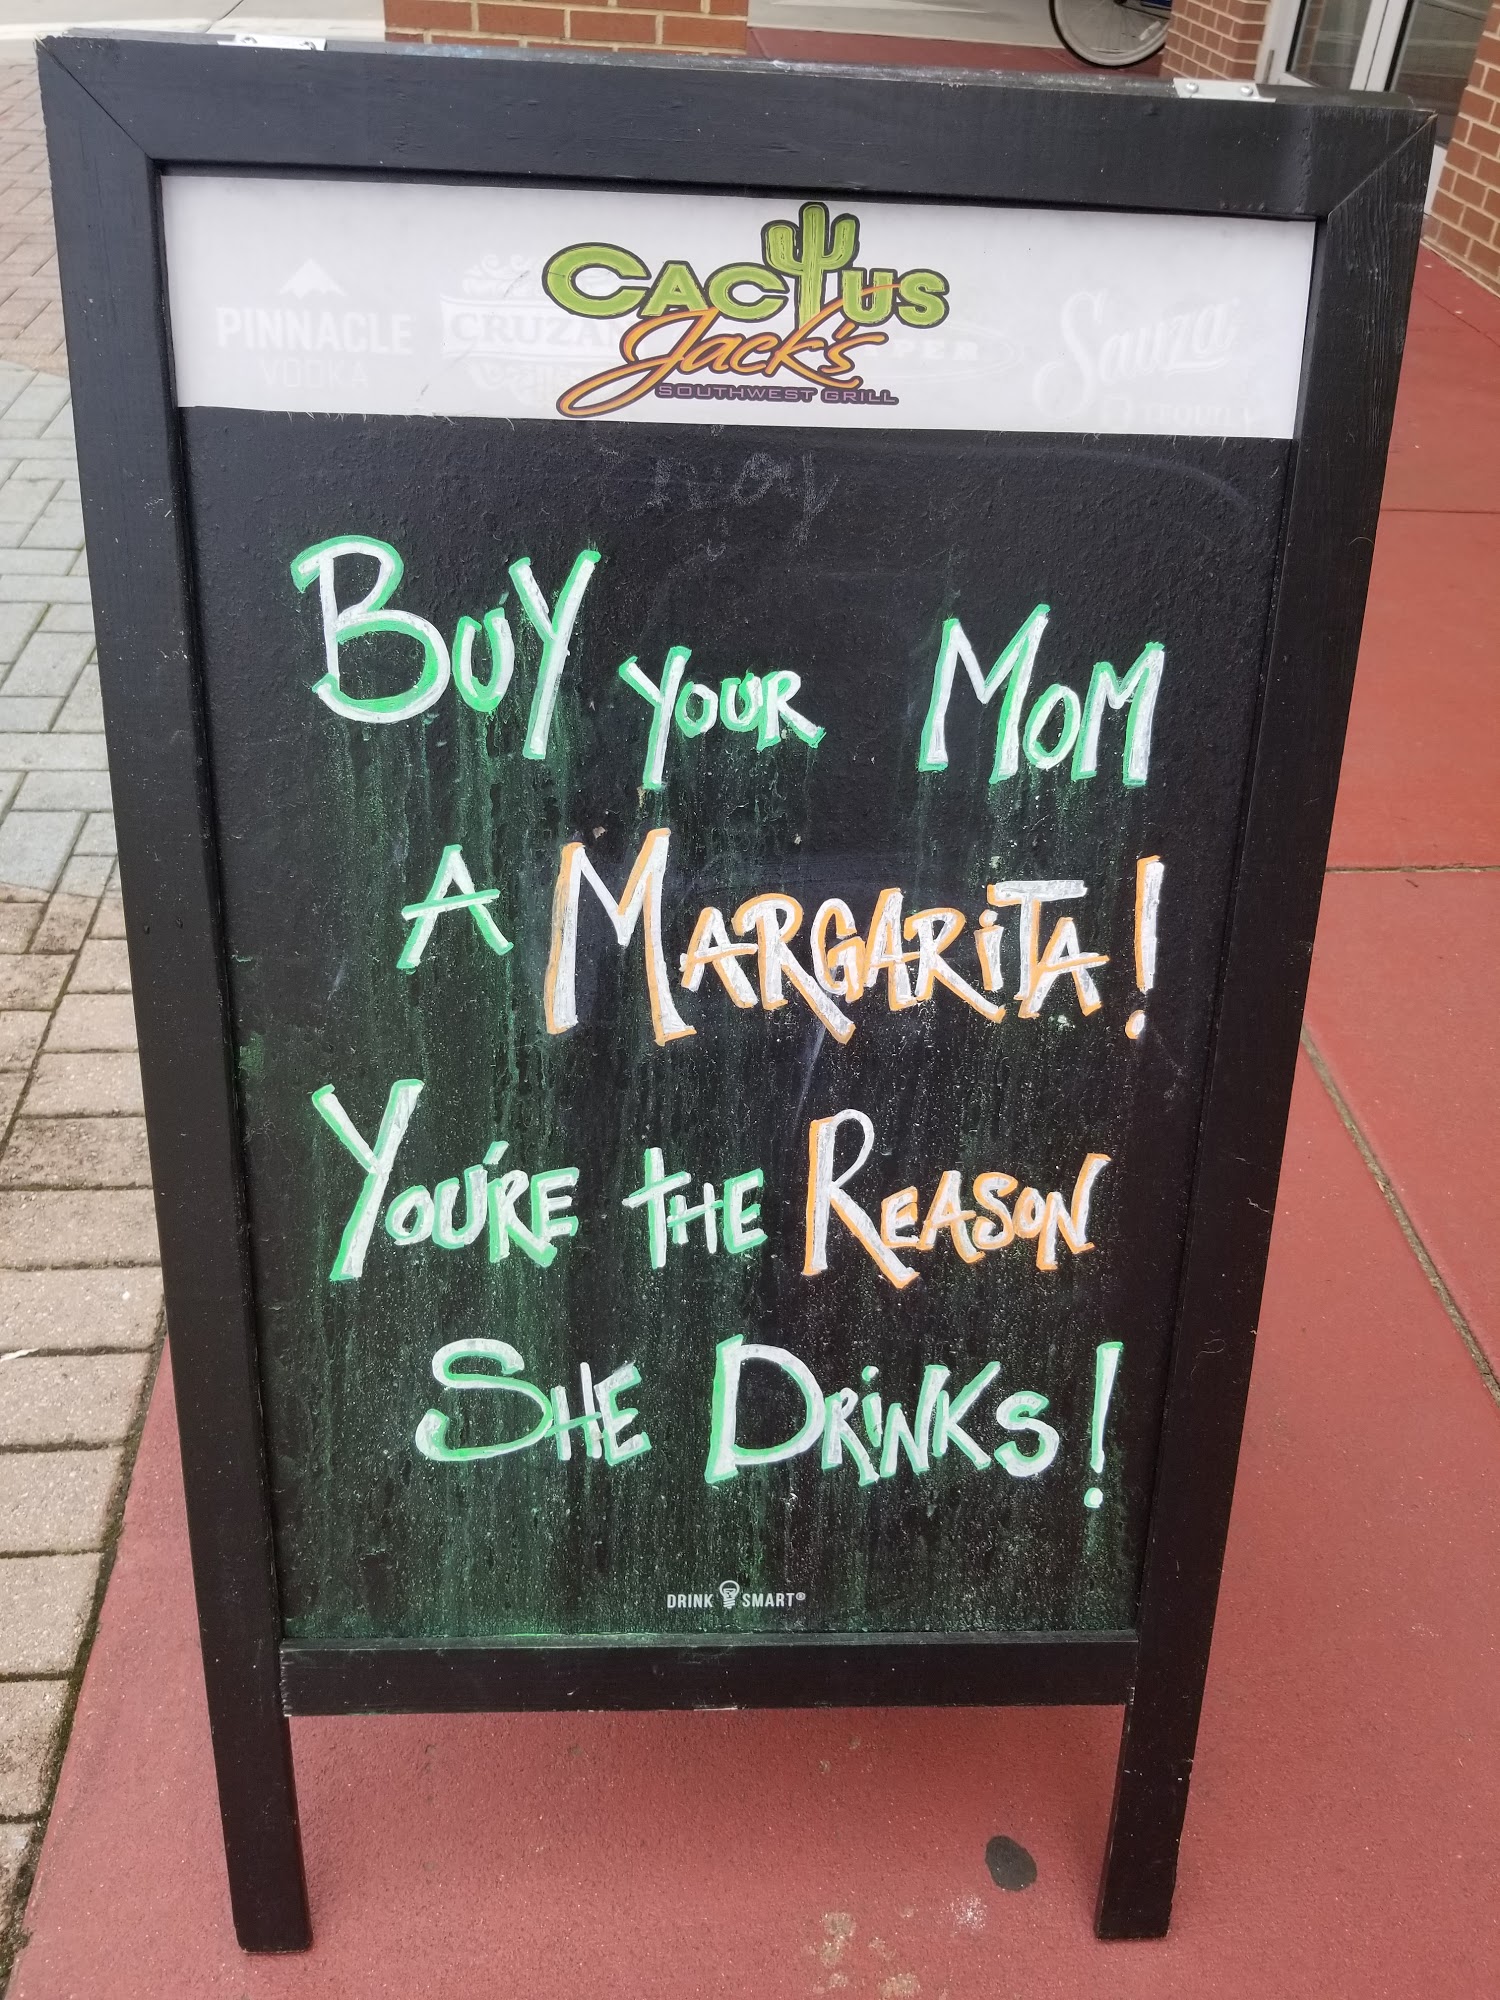 CACTUS
Jack's
SOUTHWEST GRILL
PINNACLE
VODKA
CRUZAN
Sauza
TEQUILA
BUY YOUR MOM
A MARGARITA!
YOU'RE THE REASON
SHE DRINKS!
DRINK SMART®